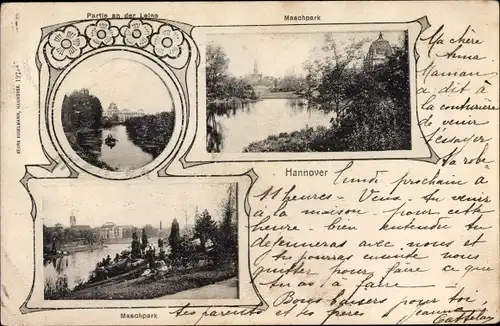 Partie an der Leine
Maschpark
Hannover
Maschpark
Ma chère
Anna
Maman
a dit
à la couturière
de venir
t'essayer
ta robe
lundi prochain à
11 heures - Veux-tu venir
à la maison pour cette
heure - bien entendu tu
déjeuneras avec nous et
tu pourras ensuite nous
quitter pour faire ce que
tu as à faire -
Bons baisers pour toi,
tes parents et tes frères
Jeanne